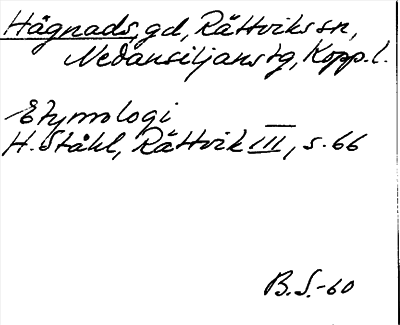 Hägnads, gd, Rättviks sn,
Nedansiljans tg, Kopp. l.
Etymologi
H. Ståhl, Rättvik III, s. 66
B.S.-60